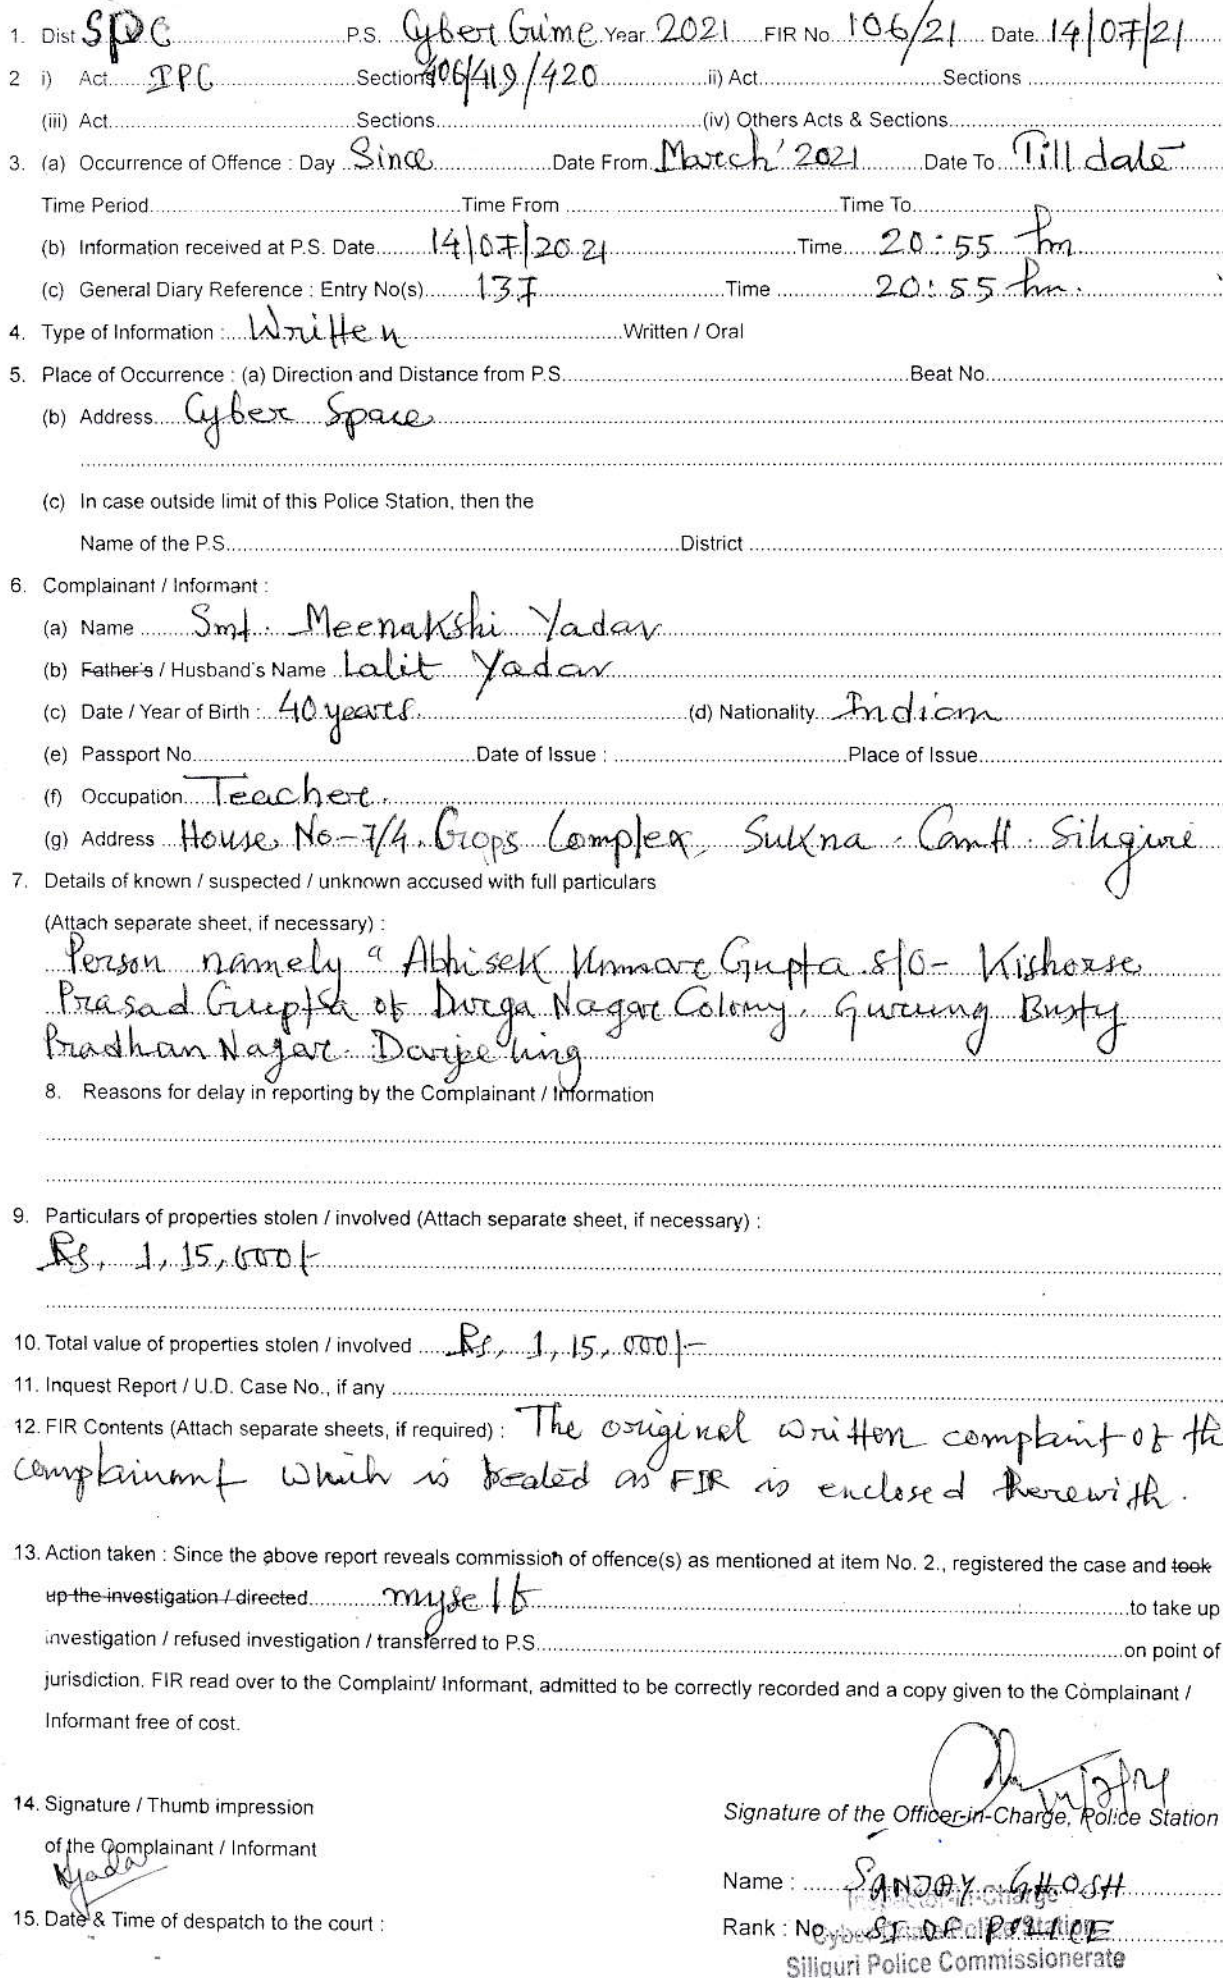 1. Dist SPC P.S. Cyber Crime Year 2021 FIR No. 106/21 Date 14/07/21
2 i) Act IPC Sections 406/419/420 ii) Act Sections
(iii) Act Sections (iv) Others Acts & Sections
3. (a) Occurrence of Offence : Day Since Date From March' 2021 Date To Till date
Time Period Time From Time To
(b) Information received at P.S. Date 14/07/2021 Time 20:55 hrs
(c) General Diary Reference : Entry No(s) 137 Time 20:55 hrs.
4. Type of Information : Written Written / Oral
5. Place of Occurrence : (a) Direction and Distance from P.S. Beat No.
(b) Address Cyber Space
(c) In case outside limit of this Police Station, then the
Name of the P.S. District
6. Complainant / Informant :
(a) Name Smt. Meenakshi Yadav
(b) Father's / Husband's Name Lalit Yadav
(c) Date / Year of Birth : 40 years. (d) Nationality Indian
(e) Passport No. Date of Issue : Place of Issue
(f) Occupation Teacher.
(g) Address House No-7/4, Complex, Sukna Cantt. Siliguri
7. Details of known / suspected / unknown accused with full particulars
(Attach separate sheet, if necessary) :
Person namely " Abhisek Kumar Gupta s/o- Kishore
Prasad Gupta of Durga Nagar Colony, Gurung Busty
Pradhan Nagar. Darjeeling
8. Reasons for delay in reporting by the Complainant / Information
9. Particulars of properties stolen / involved (Attach separate sheet, if necessary) :
Rs, 1,15,000/-
10. Total value of properties stolen / involved Rs, 1,15,000/-
11. Inquest Report / U.D. Case No., if any
12. FIR Contents (Attach separate sheets, if required) : The original written complaint of the
complainant which is treated as FIR is enclosed therewith.
13. Action taken : Since the above report reveals commission of offence(s) as mentioned at item No. 2., registered the case and took
up the investigation / directed myself to take up
investigation / refused investigation / transferred to P.S. on point of
jurisdiction. FIR read over to the Complaint/ Informant, admitted to be correctly recorded and a copy given to the Complainant /
Informant free of cost.
14/7/21
14. Signature / Thumb impression
Signature of the Officer-in-Charge, Police Station
of the Complainant / Informant
Name : SANJOY GHOSH
15. Date & Time of despatch to the court :
Rank : No. SI OF POLICE
Cyber Crime Police Station
Siliguri Police Commissionerate